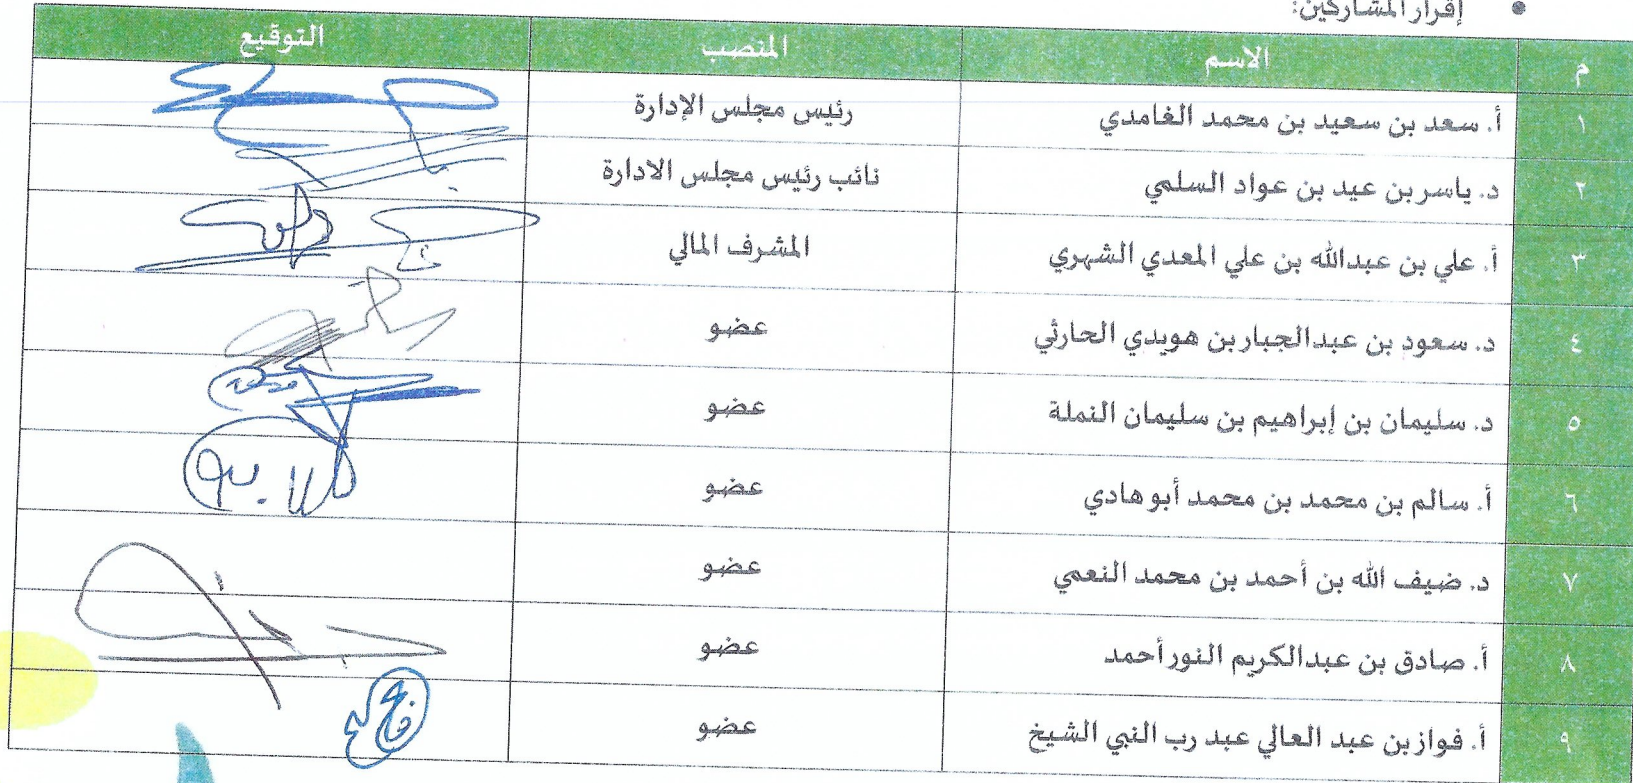 • إقرار المشاركين:
م الاسم المنصب التوقيع
١ أ. سعد بن سعيد بن محمد الغامدي رئيس مجلس الإدارة
٢ د. ياسر بن عيد بن عواد السلمي نائب رئيس مجلس الادارة
٣ أ. علي بن عبدالله بن علي المعدي الشهري المشرف المالي
٤ د. سعود بن عبدالجبار بن هويدي الحارثي عضو
٥ د. سليمان بن إبراهيم بن سليمان النملة عضو
٦ أ. سالم بن محمد بن محمد أبو هادي عضو
٧ د. ضيف الله بن أحمد بن محمد النعمي عضو
٨ أ. صادق بن عبدالكريم النور أحمد عضو
٩ أ. فواز بن عبد العالي عبد رب النبي الشيخ عضو